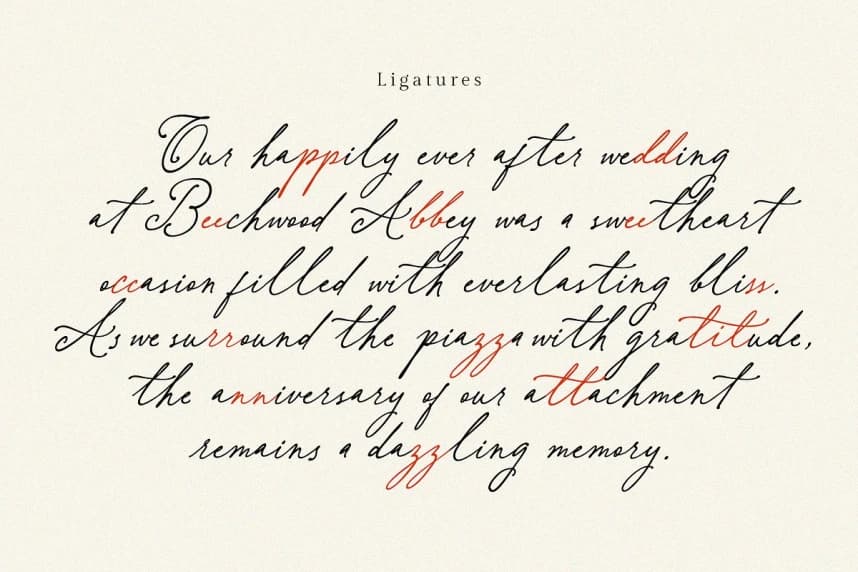 Ligatures
Our happily ever after wedding
at Beechwood Abbey was a sweetheart
occasion filled with everlasting bliss.
As we surround the piazza with gratitude,
the anniversary of our attachment
remains a dazzling memory.